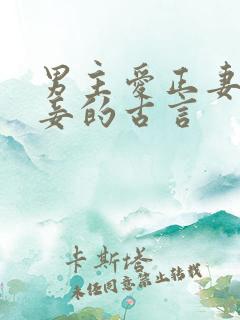 男主爱正妻
妾的古言
卡斯塔
未经同意禁止转载